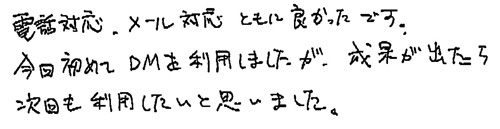 電話対応、メール対応 ともに良かったです。
今回初めて DMを利用しましたが、成果が出たら
次回も利用したいと思いました。